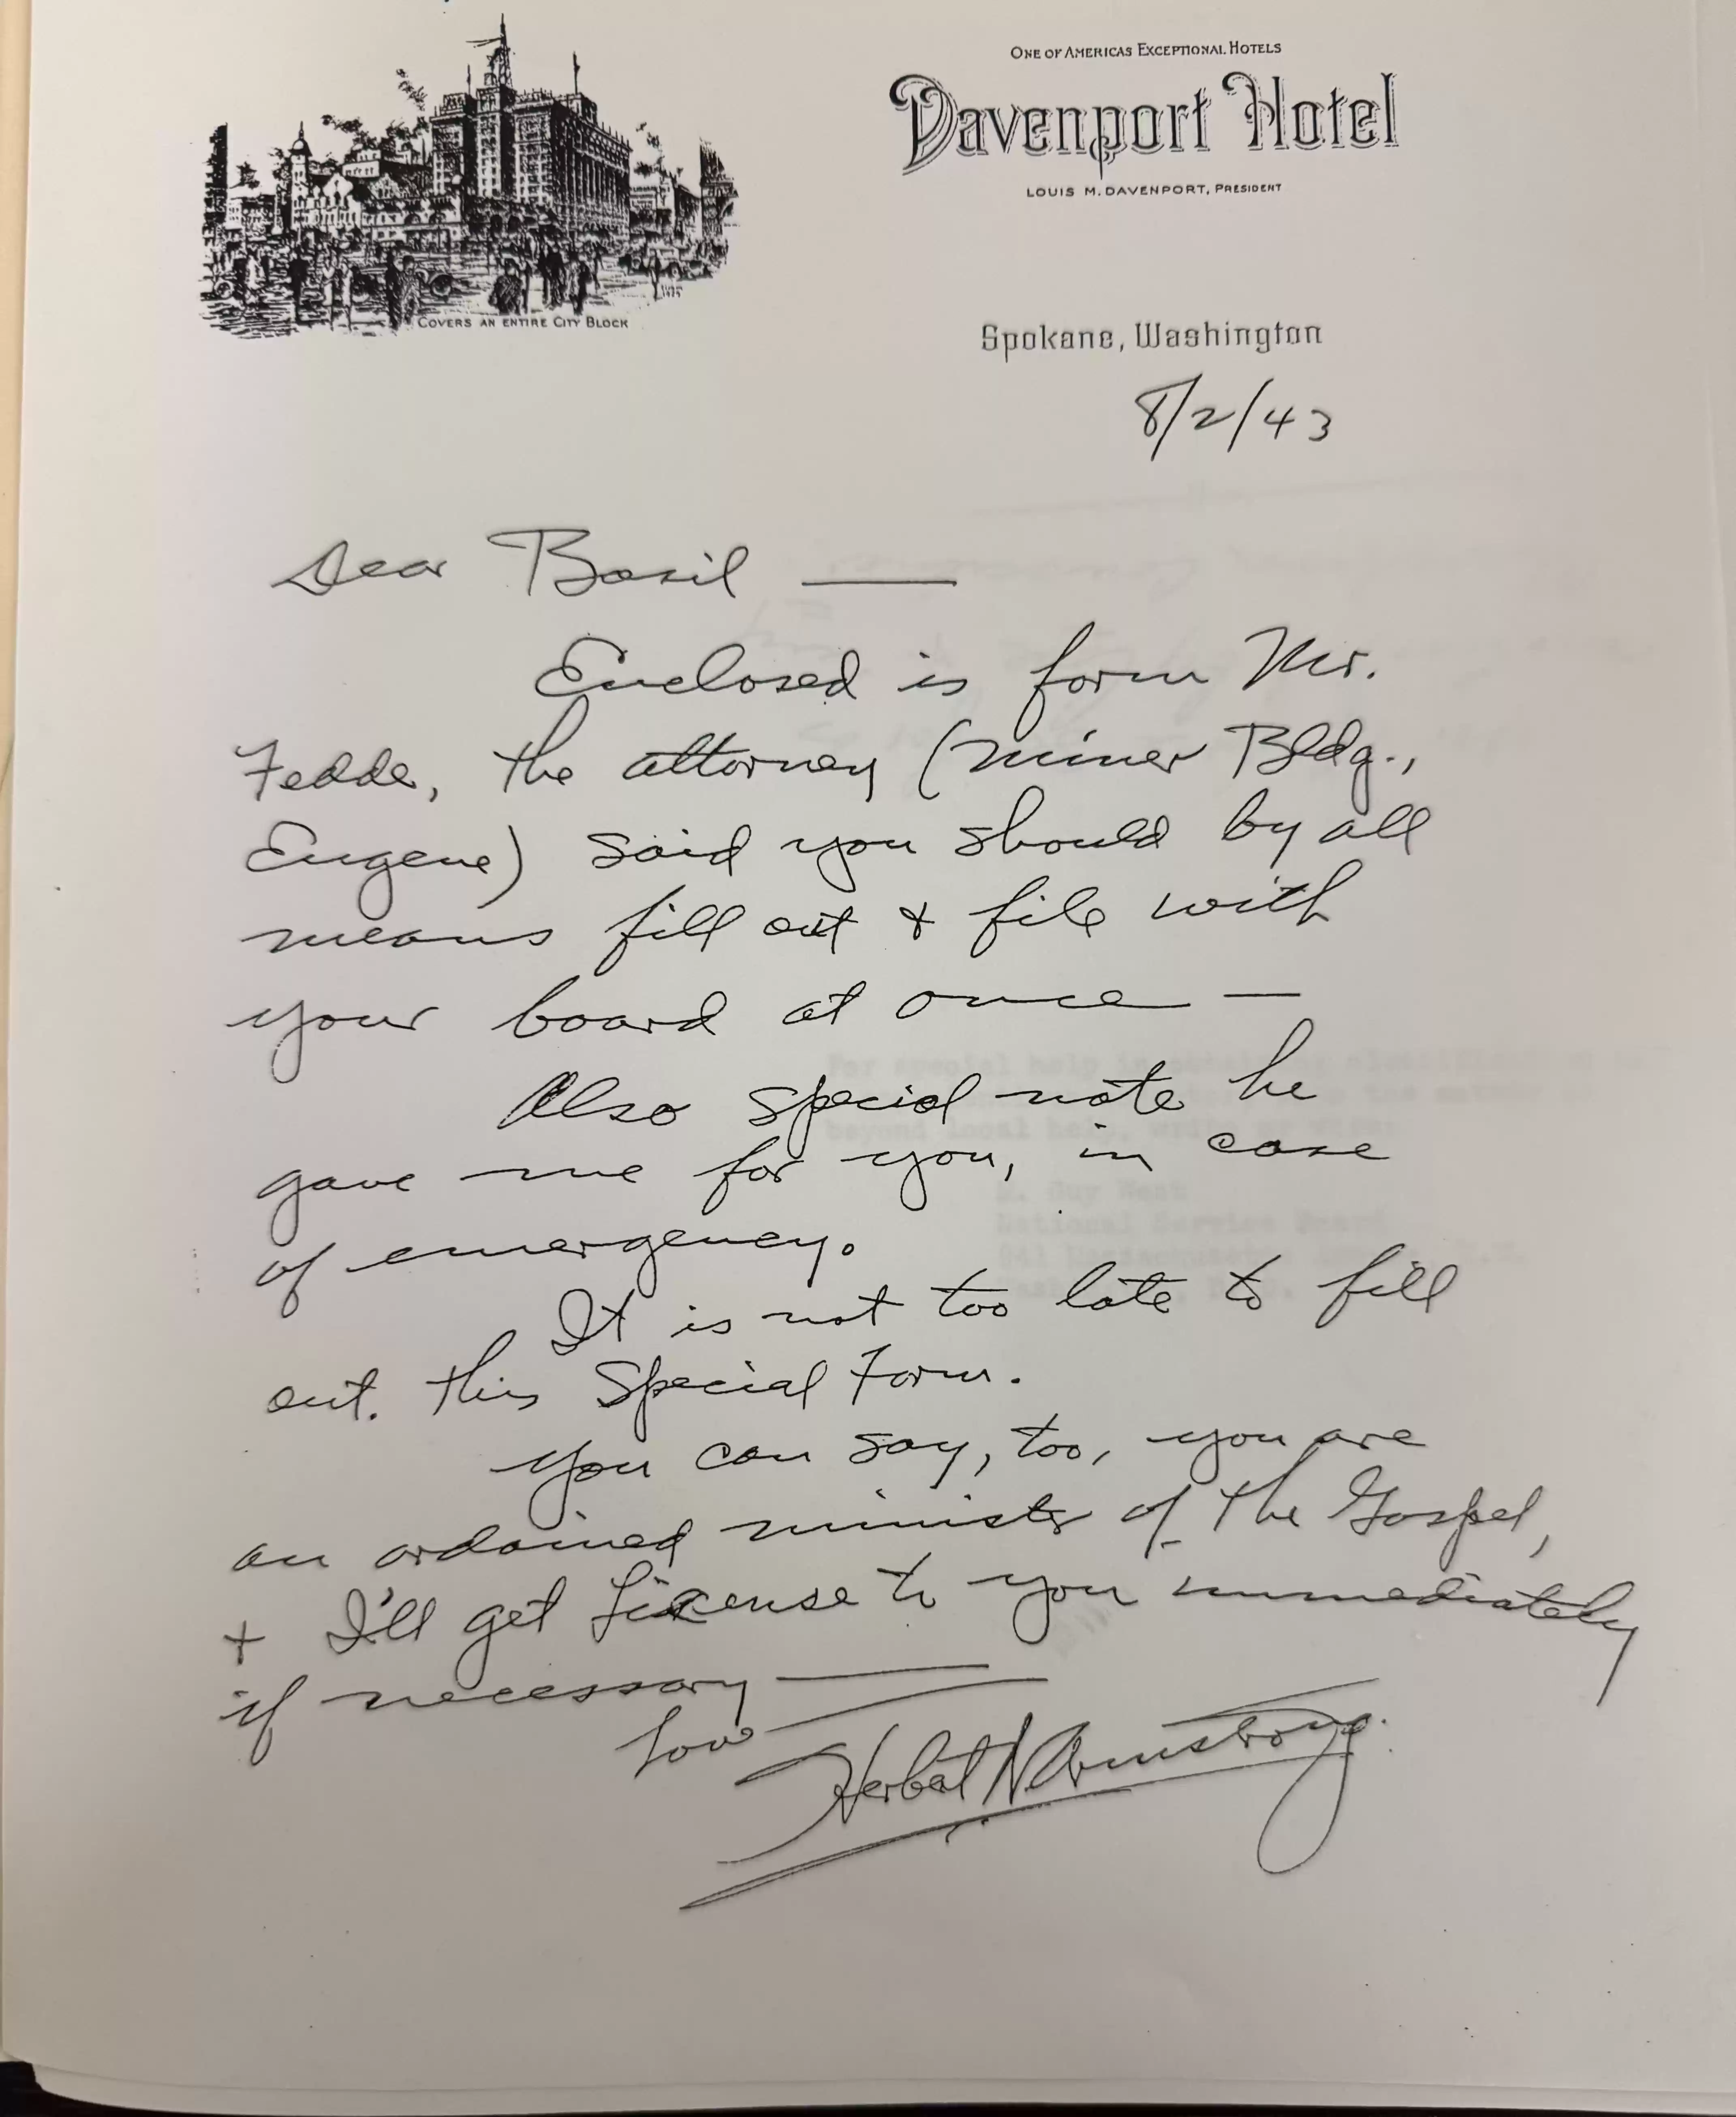 ONE OF AMERICAS EXCEPTIONAL HOTELS
Davenport Hotel
LOUIS M. DAVENPORT, PRESIDENT
COVERS AN ENTIRE CITY BLOCK
Spokane, Washington
8/2/43
Dear Basil —
Enclosed is form Mr.
Fedde, the attorney (Miner Bldg.,
Eugene) said you should by all
means fill out & file with
your board at once —
Also special note he
gave me for you, in case
of emergency.
It is not too late to fill
out. this Special Form.
You can say, too, you are
an ordained minister of the Gospel,
+ I'll get License to you immediately
if necessary —
Love
Herbert W Armstrong.
For special help in obtaining
beyond local help, write
M. Guy West
National Service Board
941 Massachusetts